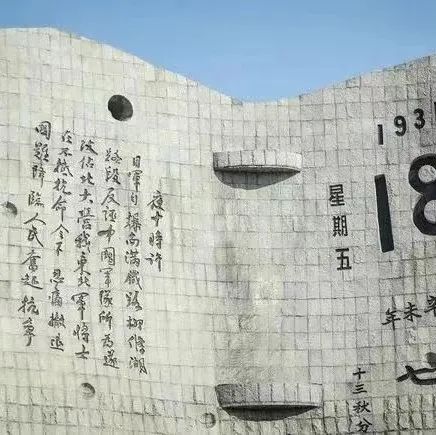 1931
18
星期五
辛未年
七
十三秋分
夜十時許
日軍自爆南滿鐵路柳條湖
路段反誣中國軍隊所為遂
攻佔北大營我東北軍將士
在不抵抗命令下忍痛撤退
國難降臨人民奮起抗爭